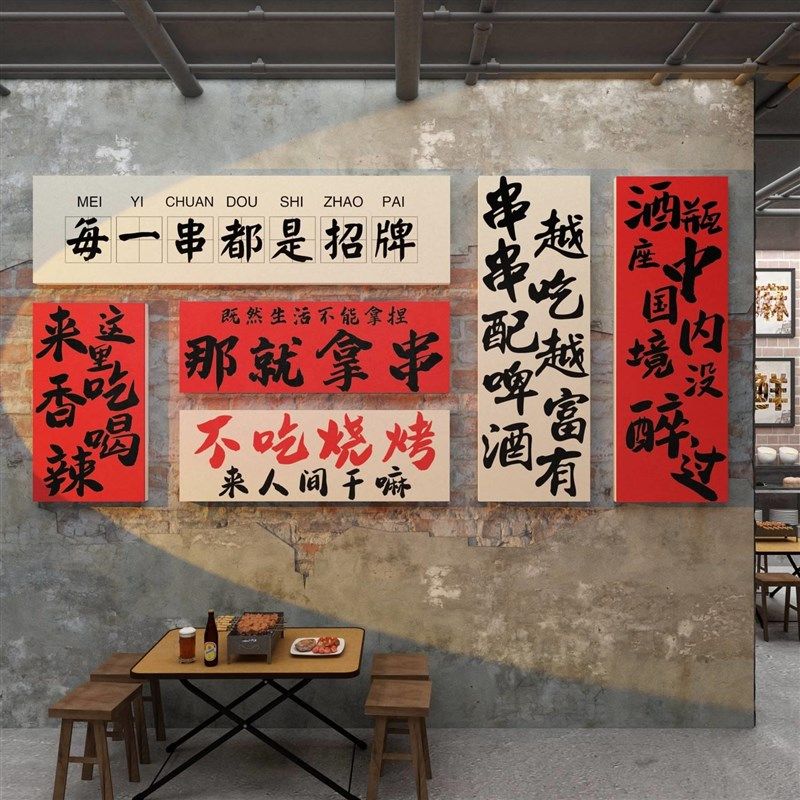 MEI YI CHUAN DOU SHI ZHAO PAI
每一串都是招牌
来这里
吃香喝辣
既然生活不能拿捏
那就拿串
不吃烧烤
来人间干嘛
串串配啤酒
越吃越富有
酒瓶座
中国境内
没醉过